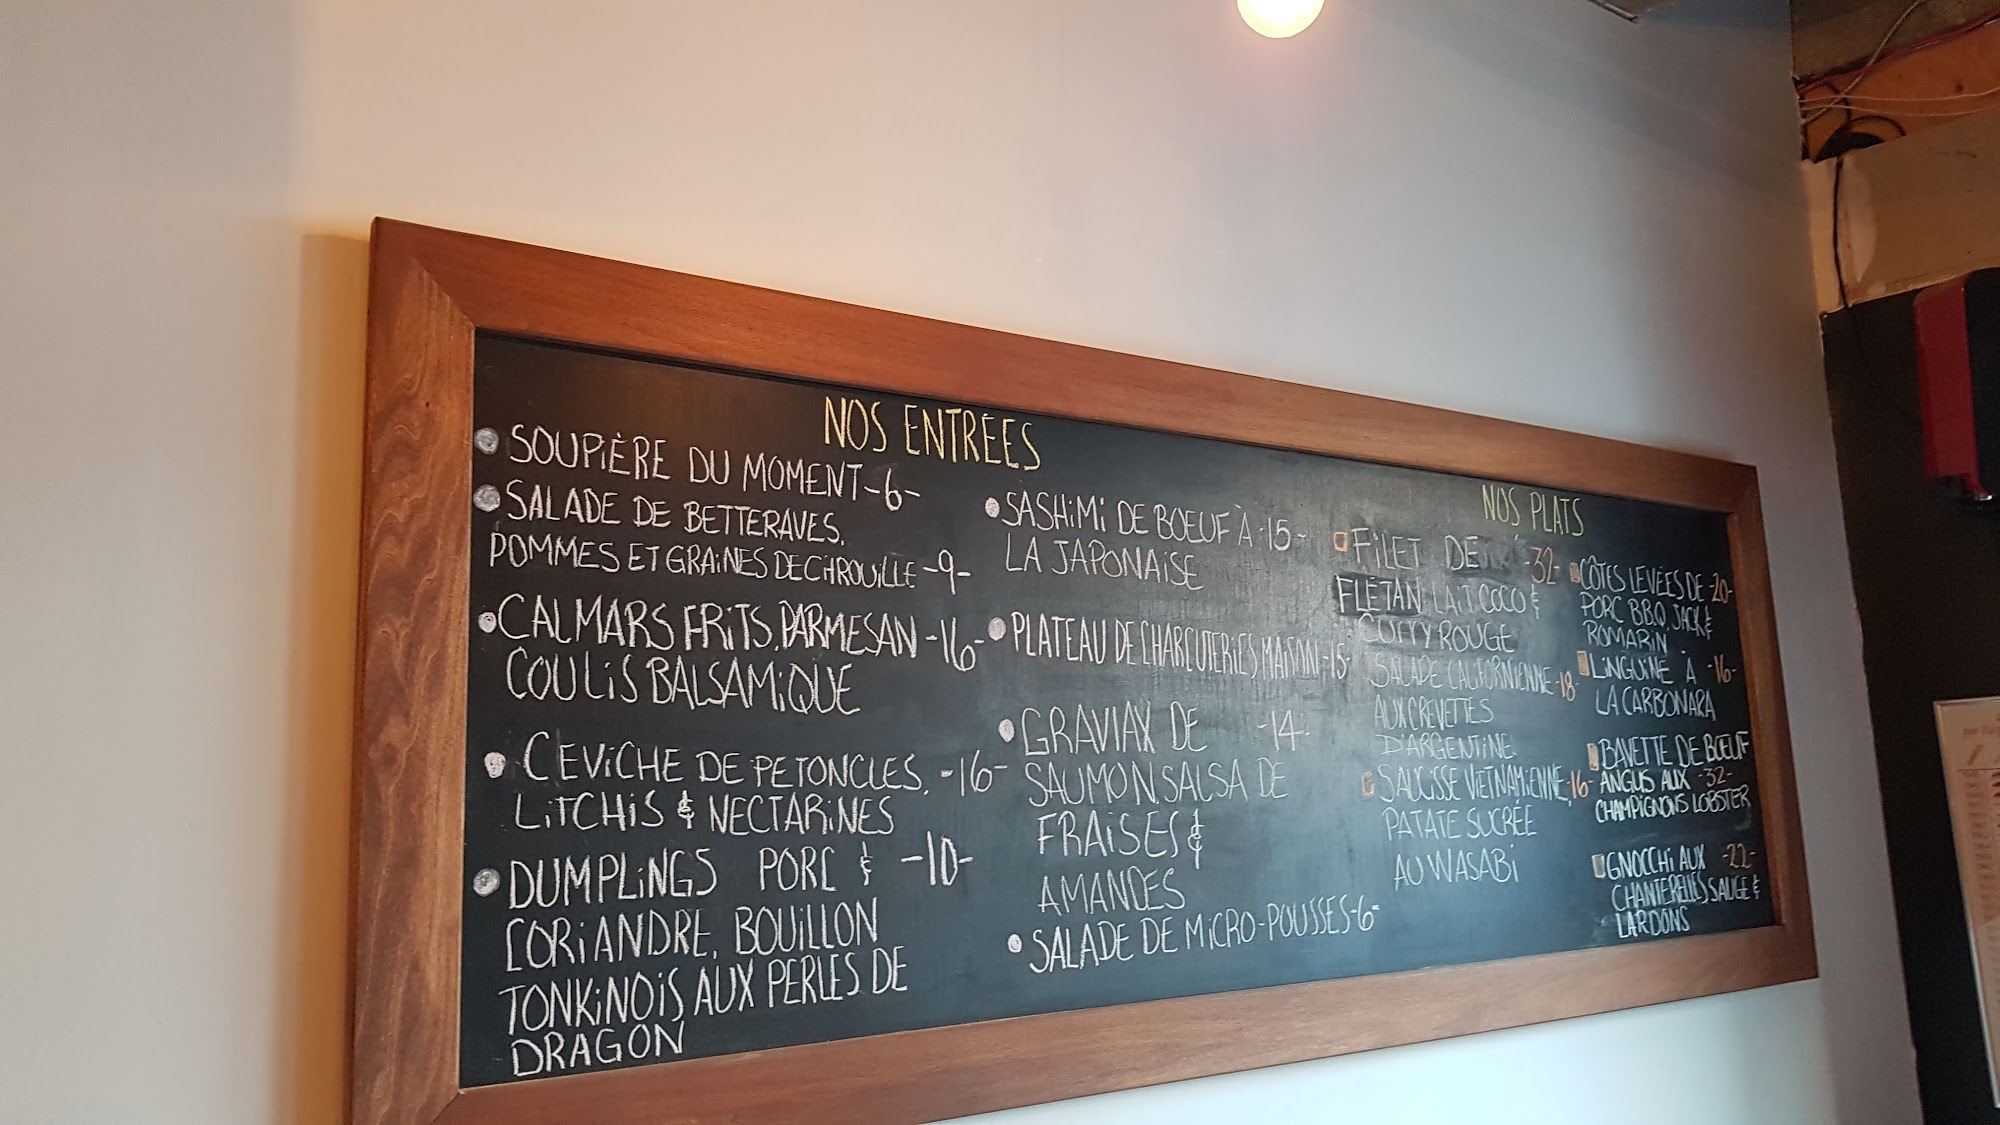 NOS ENTRÉES
SOUPIÈRE DU MOMENT -6-
SALADE DE BETTERAVES,
POMMES ET GRAINES DE CITROUILLE -9-
CALMARS FRITS, PARMESAN -16-
COULIS BALSAMIQUE
CEVICHE DE PETONCLES, -16-
LITCHIS & NECTARINES
DUMPLINGS PORC & -10-
CORIANDRE, BOUILLON
TONKINOIS AUX PERLES DE
DRAGON
SASHIMI DE BOEUF À -15-
LA JAPONAISE
PLATEAU DE CHARCUTERIES MAISON -15-
GRAVLAX DE -14-
SAUMON, SALSA DE
FRAISES &
AMANDES
SALADE DE MICRO-POUSSES -6-
NOS PLATS
FILET DE -32-
FLÉTAN, LAIT COCO &
CURRY ROUGE
SALADE CALIFORNIENNE -18
AUX CREVETTES
D'ARGENTINE
SAUCISSE VIETNAMIENNE, -16-
PATATE SUCRÉE
AU WASABI
CÔTES LEVÉES DE -20-
PORC B.B.Q, JACK &
ROMARIN
LINGUINE À -16-
LA CARBONARA
BAVETTE DE BOEUF
ANGUS AUX -32-
CHAMPIGNONS LOBSTER
GNOCCHI AUX -22-
CHANTERELLES, SAUGE &
LARDONS